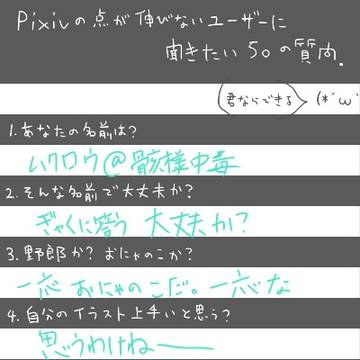 Pixivの点が伸びないユーザーに
聞きたい50の質問.
君ならできる (*´ω`
1.あなたの名前は?
ムクロウ@骸様中毒
2.そんな名前で大丈夫か?
ぎゃくに答う 大丈夫か?
3.野郎か? おにゃのこか?
一応 おにゃのこだ。一応な
4.自分のイラスト上手いと思う?
思うわけねーーー